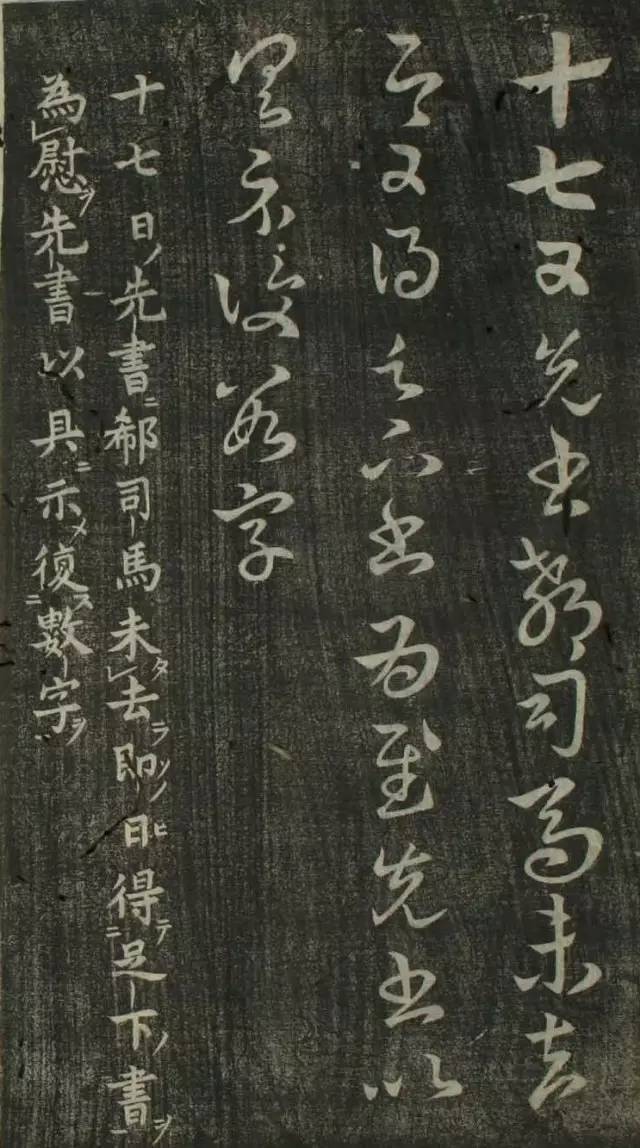 十七日先書郗司馬未去
即日得足下書為慰先書以
具示復數字
十七日ノ先書ニ郗司馬未タ去ラソノ即日ヒ得テ足下ノ書ヲ
為慰ヲ先書以具ニ示メ復スニ數字ヲ